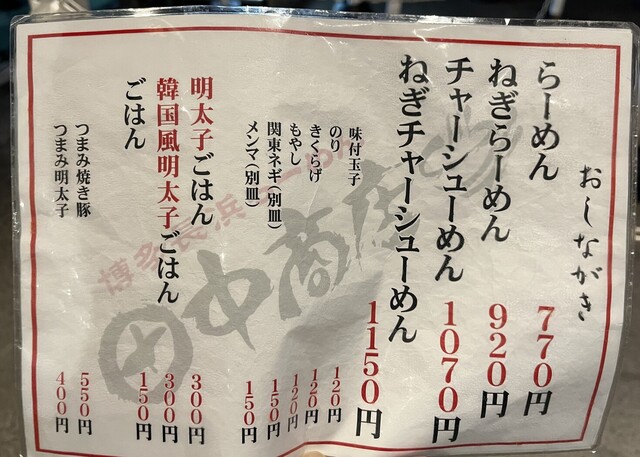 おしながき
らーめん 770円
ねぎらーめん 920円
チャーシューめん 1070円
ねぎチャーシューめん 1150円
味付玉子
のり 120円
きくらげ 120円
もやし 120円
関東ネギ(別皿) 150円
メンマ(別皿) 150円
明太子ごはん 300円
韓国風明太子ごはん 300円
ごはん 150円
つまみ焼き豚 550円
つまみ明太子 400円
博多長浜らーめん
田中商店